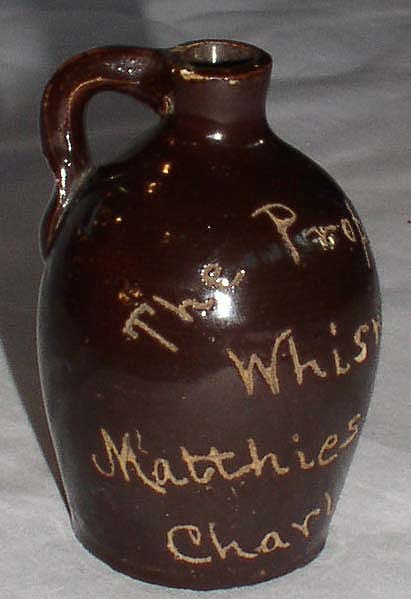 The Prop
Whis
Matthies
Charl